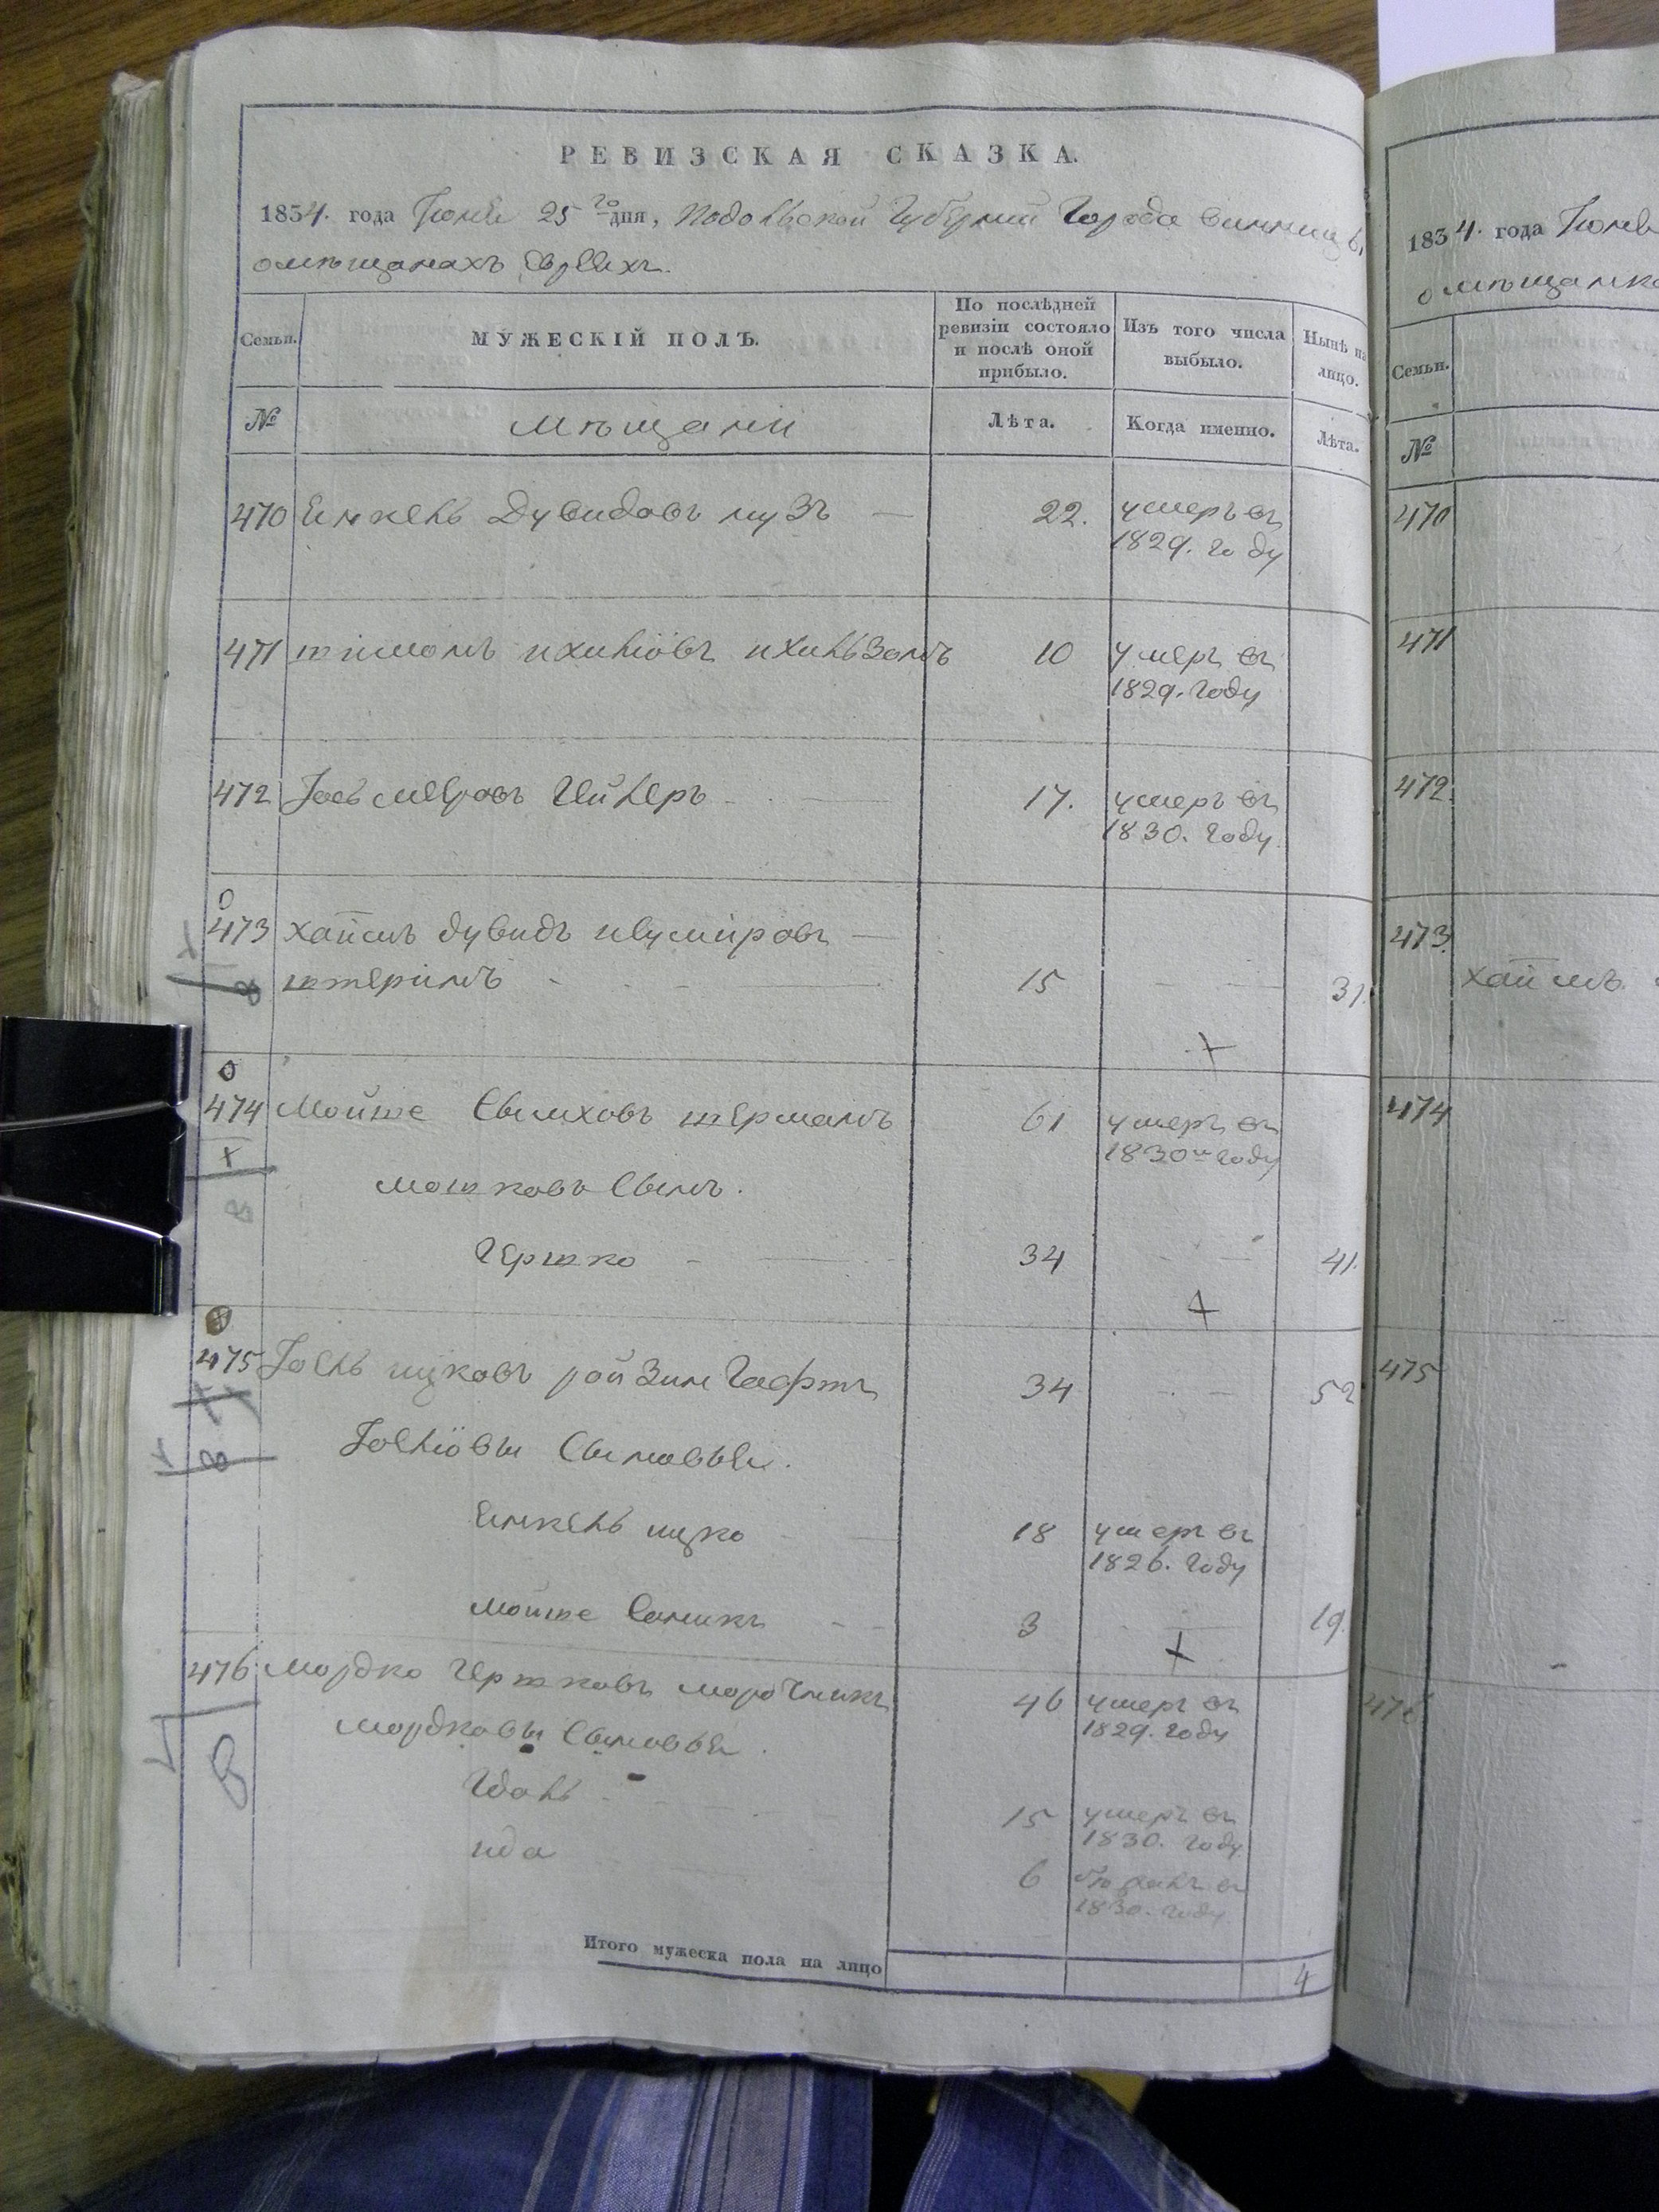 РЕВИЗСКАЯ СКАЗКА.
1834. года Іюня 25 го дня, Подольской Губерніи Города Винницы
о мѣщанахъ Евреяхъ.
Семьи.
МУЖЕСКІЙ ПОЛЪ.
По послѣдней ревизіи состояло и послѣ оной прибыло.
Изъ того числа выбыло.
Нынѣ на лицо.
№
Мѣщани
Лѣта.
Когда именно.
Лѣта.
470 Енкель Дувидовъ музъ — 22. умеръ въ
1829. году
471 шимонъ ихилiовъ ихильзонъ 10 умеръ въ
1829. году
472 Іось меровъ Гейлеръ — 17. умеръ въ
1830. году
473 хаимъ дувидъ —
штеринъ — 15 — — 31.
474 Мойше германъ 61 умеръ въ
1830м году
мошковъ Сынъ.
Гершко — 34 — — 41.
475 Іоель ицковъ ройзингафтъ 34 — 52
Іоелiовы Сыновья.
Енкель ицко — 18 умеръ въ
1826. году
мойше — 3 — 19.
476 мордко Гершковъ 46 умеръ въ
1829. году
мордковы Сыновья.
15 умеръ въ
1830. году
ида 6 въ
1830. году
Итого мужеска пола на лицо 4
1834. года Іюня
о мѣщанка
Семьи.
№
470
471
472
473.
хаимъ
474
475
476